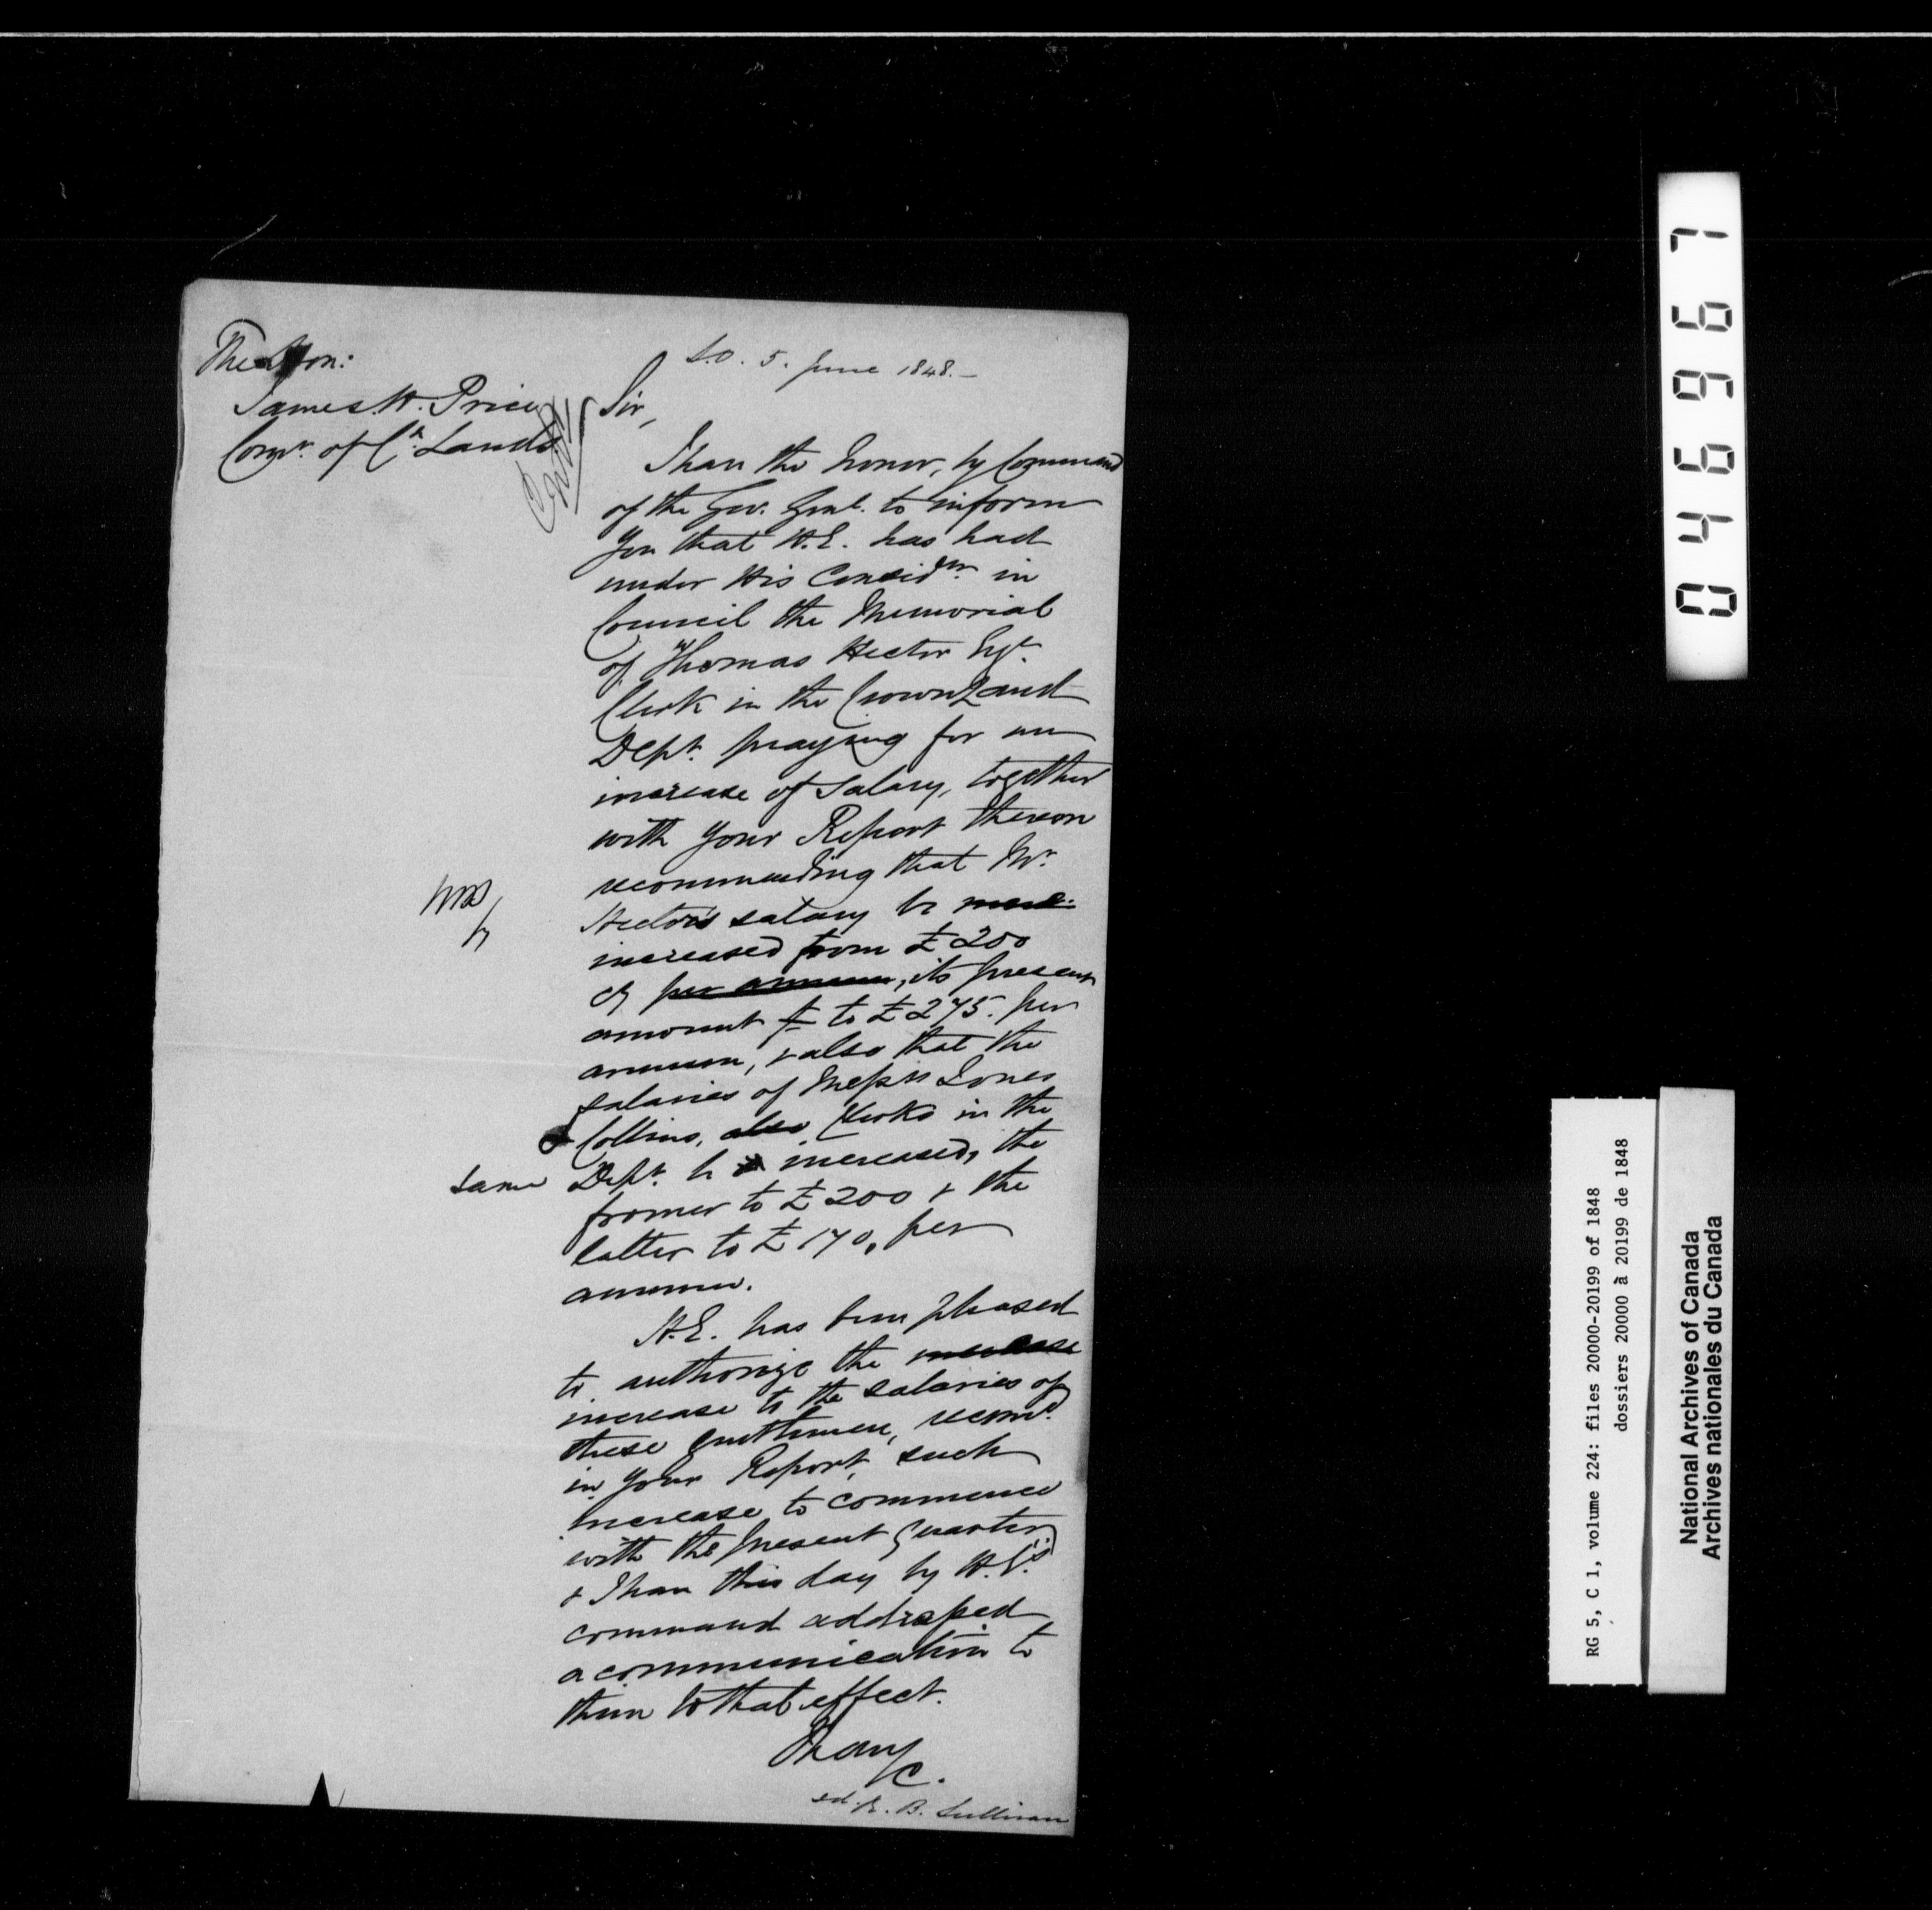 The Hon:
James H. Price
Comr. of Cn. Lands
S.O. 5. June 1848.—
Sir,
I have the honor, by Command
of the Gov. Genl. to inform
you that H.E. has had
under His Considn. in
Council the Memorial
of Thomas Hector Esqr.
Clerk in the Crown Land
Dept. praying for an
increase of salary, together
with your Report thereon
recommending that Mr.
Hector's salary be
increased from £200
per annum, its present
amount to £275. per
annum, & also that the
salaries of Messrs Jones
& Collins, also Clerks in the
same Dept. be increased, the
fromer to £200 & the
latter to £170, per
annum.
H.E. has been pleased
to authorize the increase
increase to the salaries of
these gentlemen, recomd.
in your Report, such
increase to commence
with the present quarter,
& I have this day by H.E's
command addressed
a communication to
them to that effect.
I have
&c.
sd. R. B. Sullivan
046967
RG 5, C 1, volume 224: files 20000-20199 of 1848
dossiers 20000 à 20199 de 1848
National Archives of Canada
Archives nationales du Canada